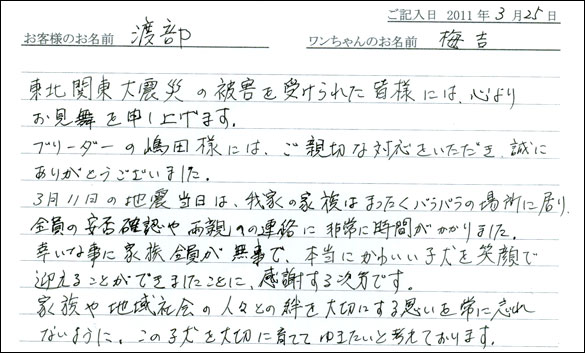 ご記入日 2011年3月25日
お客様のお名前 渡部 ワンちゃんのお名前 梅吉
東北関東大震災の被害を受けられた皆様には、心より
お見舞を申し上げます。
ブリーダーの嶋田様には、ご親切な対応をいただき、誠に
ありがとうございました。
3月11日の地震当日は、我家の家族はまったくバラバラの場所に居り、
全員の安否確認や両親への連絡に非常に時間がかかりました。
幸いな事に家族全員が無事で、本当にかわいい子犬を笑顔で
迎えることができましたことに、感謝する次第です。
家族や地域社会の人々との絆を大切にする思いを常に忘れ
ないように、この子犬を大切に育ててゆきたいと考えております。